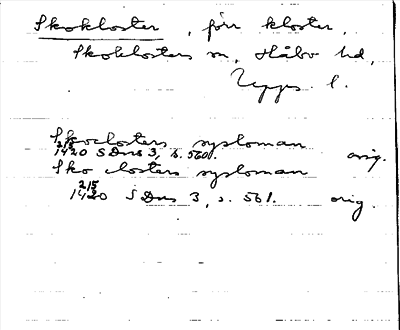 Skokloster, förr kloster,
Skoklosters sn, Håbo hd,
Upps. l.
Skoclosters systoman
21/5 1420 SDns 3, s. 560. orig.
Sko closters systoman
21/5
1420 SDns 3, s. 561. orig.